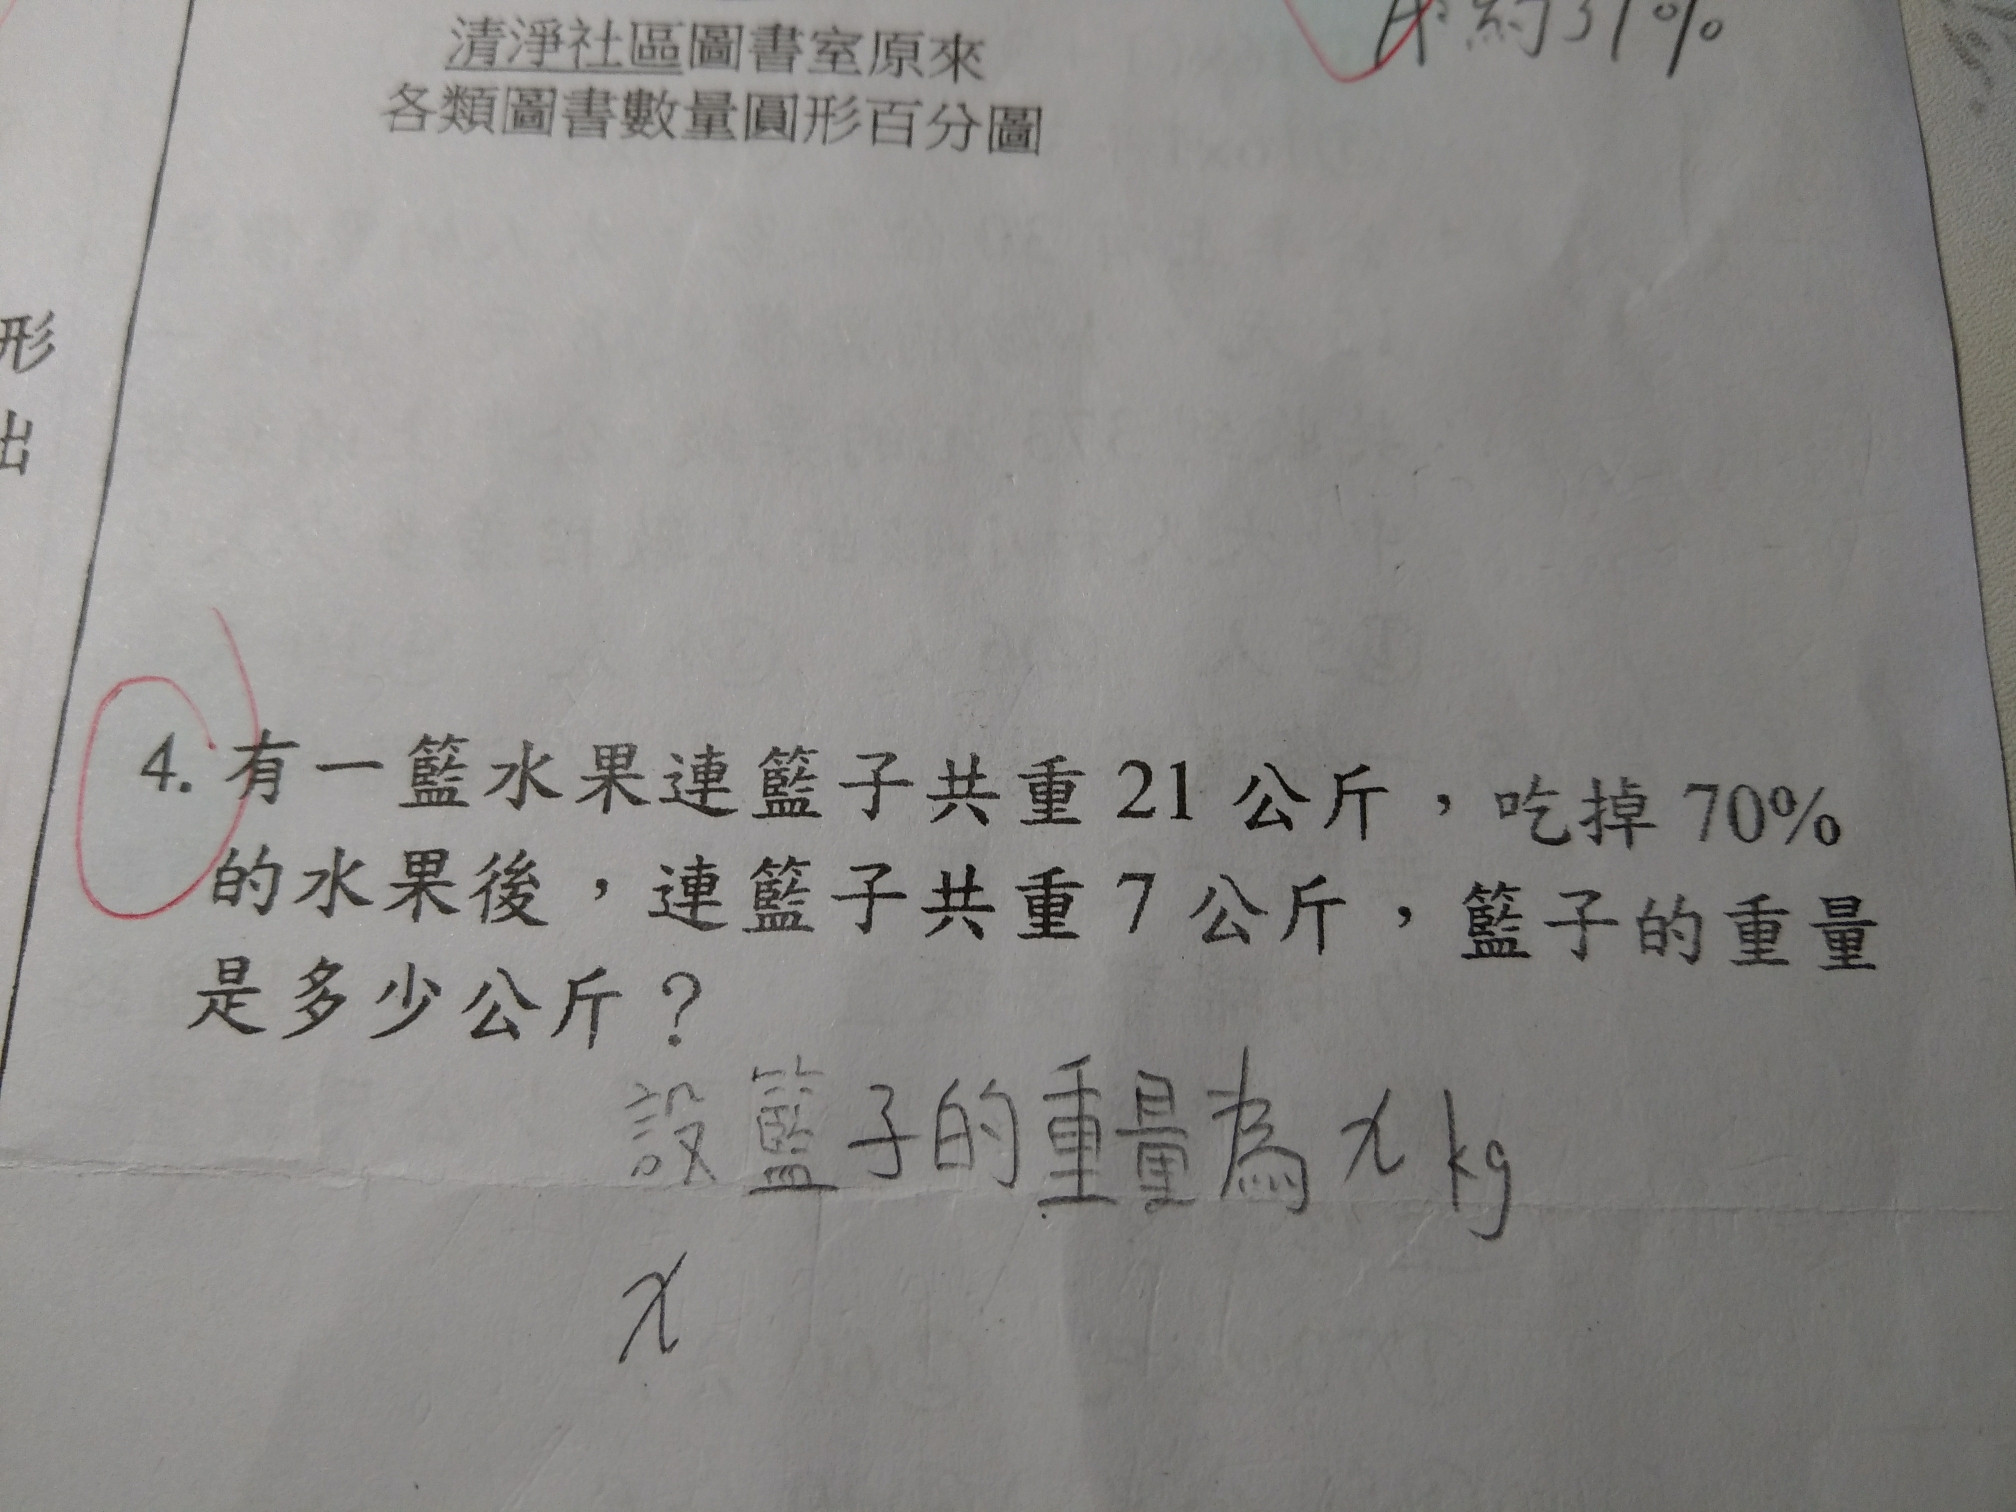 約31%
清淨社區圖書室原來
各類圖書數量圓形百分圖
形
出
4. 有一籃水果連籃子共重 21 公斤，吃掉 70%
的水果後，連籃子共重 7 公斤，籃子的重量
是多少公斤？
設籃子的重量為 x kg
x